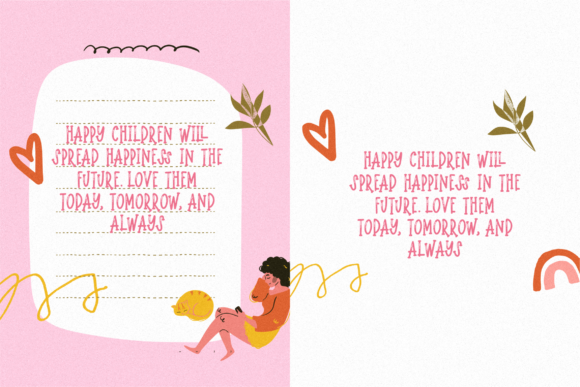 HAPPY CHILDREN WILL
SPREAD HAPPINESS IN THE
FUTURE. LOVE THEM
TODAY, TOMORROW, AND
ALWAYS
HAPPY CHILDREN WILL
SPREAD HAPPINESS IN THE
FUTURE. LOVE THEM
TODAY, TOMORROW, AND
ALWAYS